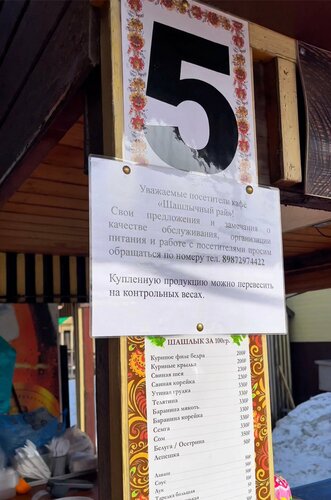 5
Уважаемые посетители кафе
«Шашлычный рай»!
Свои предложения и замечания о
качестве обслуживания, организации
питания и работе с посетителями просим
обращаться по номеру тел. 89872974422
Купленную продукцию можно перевесить
на контрольных весах.
ШАШЛЫК ЗА 100гр.
Куриное филе бедра
Куриные крылья
Свиная шея
Свиная корейка
Утиная грудка
Телятина
Баранина мякоть
Баранина корейка
Семга
Сом
Белуга / Осетрина
Аспешка
Соус
Лук
Тарелка большая